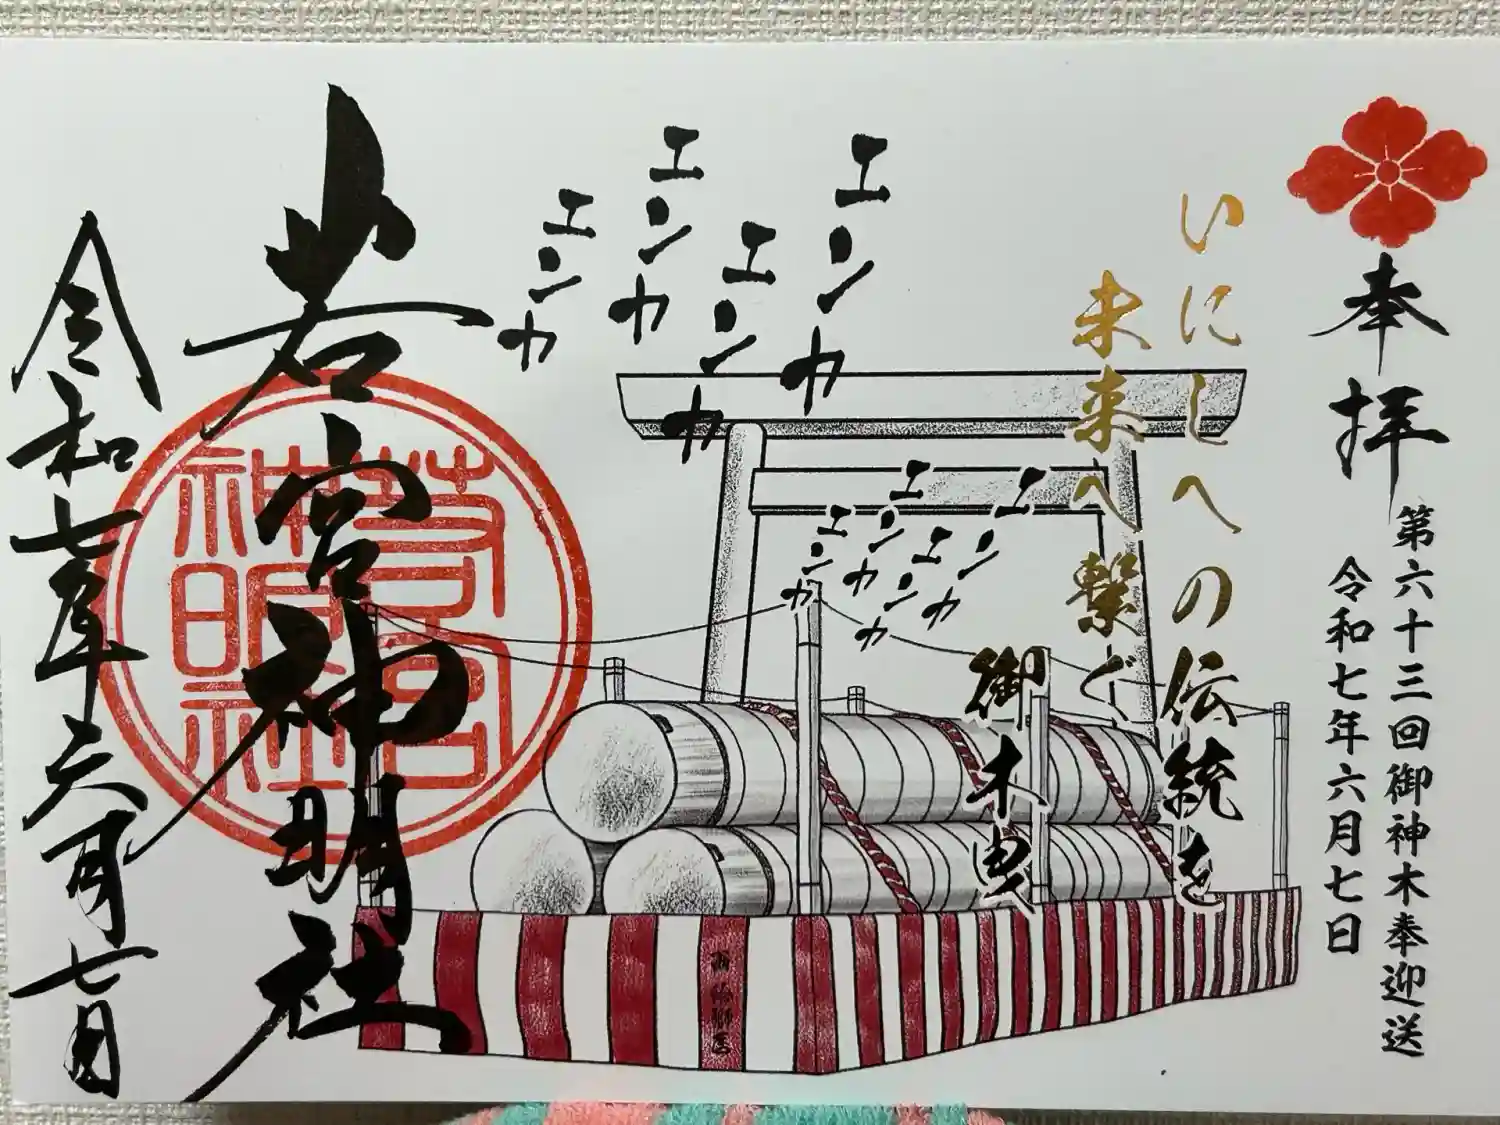 奉拝
第六十三回御神木奉迎送
令和七年六月七日
いにしへの伝統を
未来へ繋ぐ
御木曳
エンカ
エンカ
エンカ
エンカ
エンカ
エンカ
エンカ
エンカ
若宮神明社
若宮
神明社
令和七年六月七日